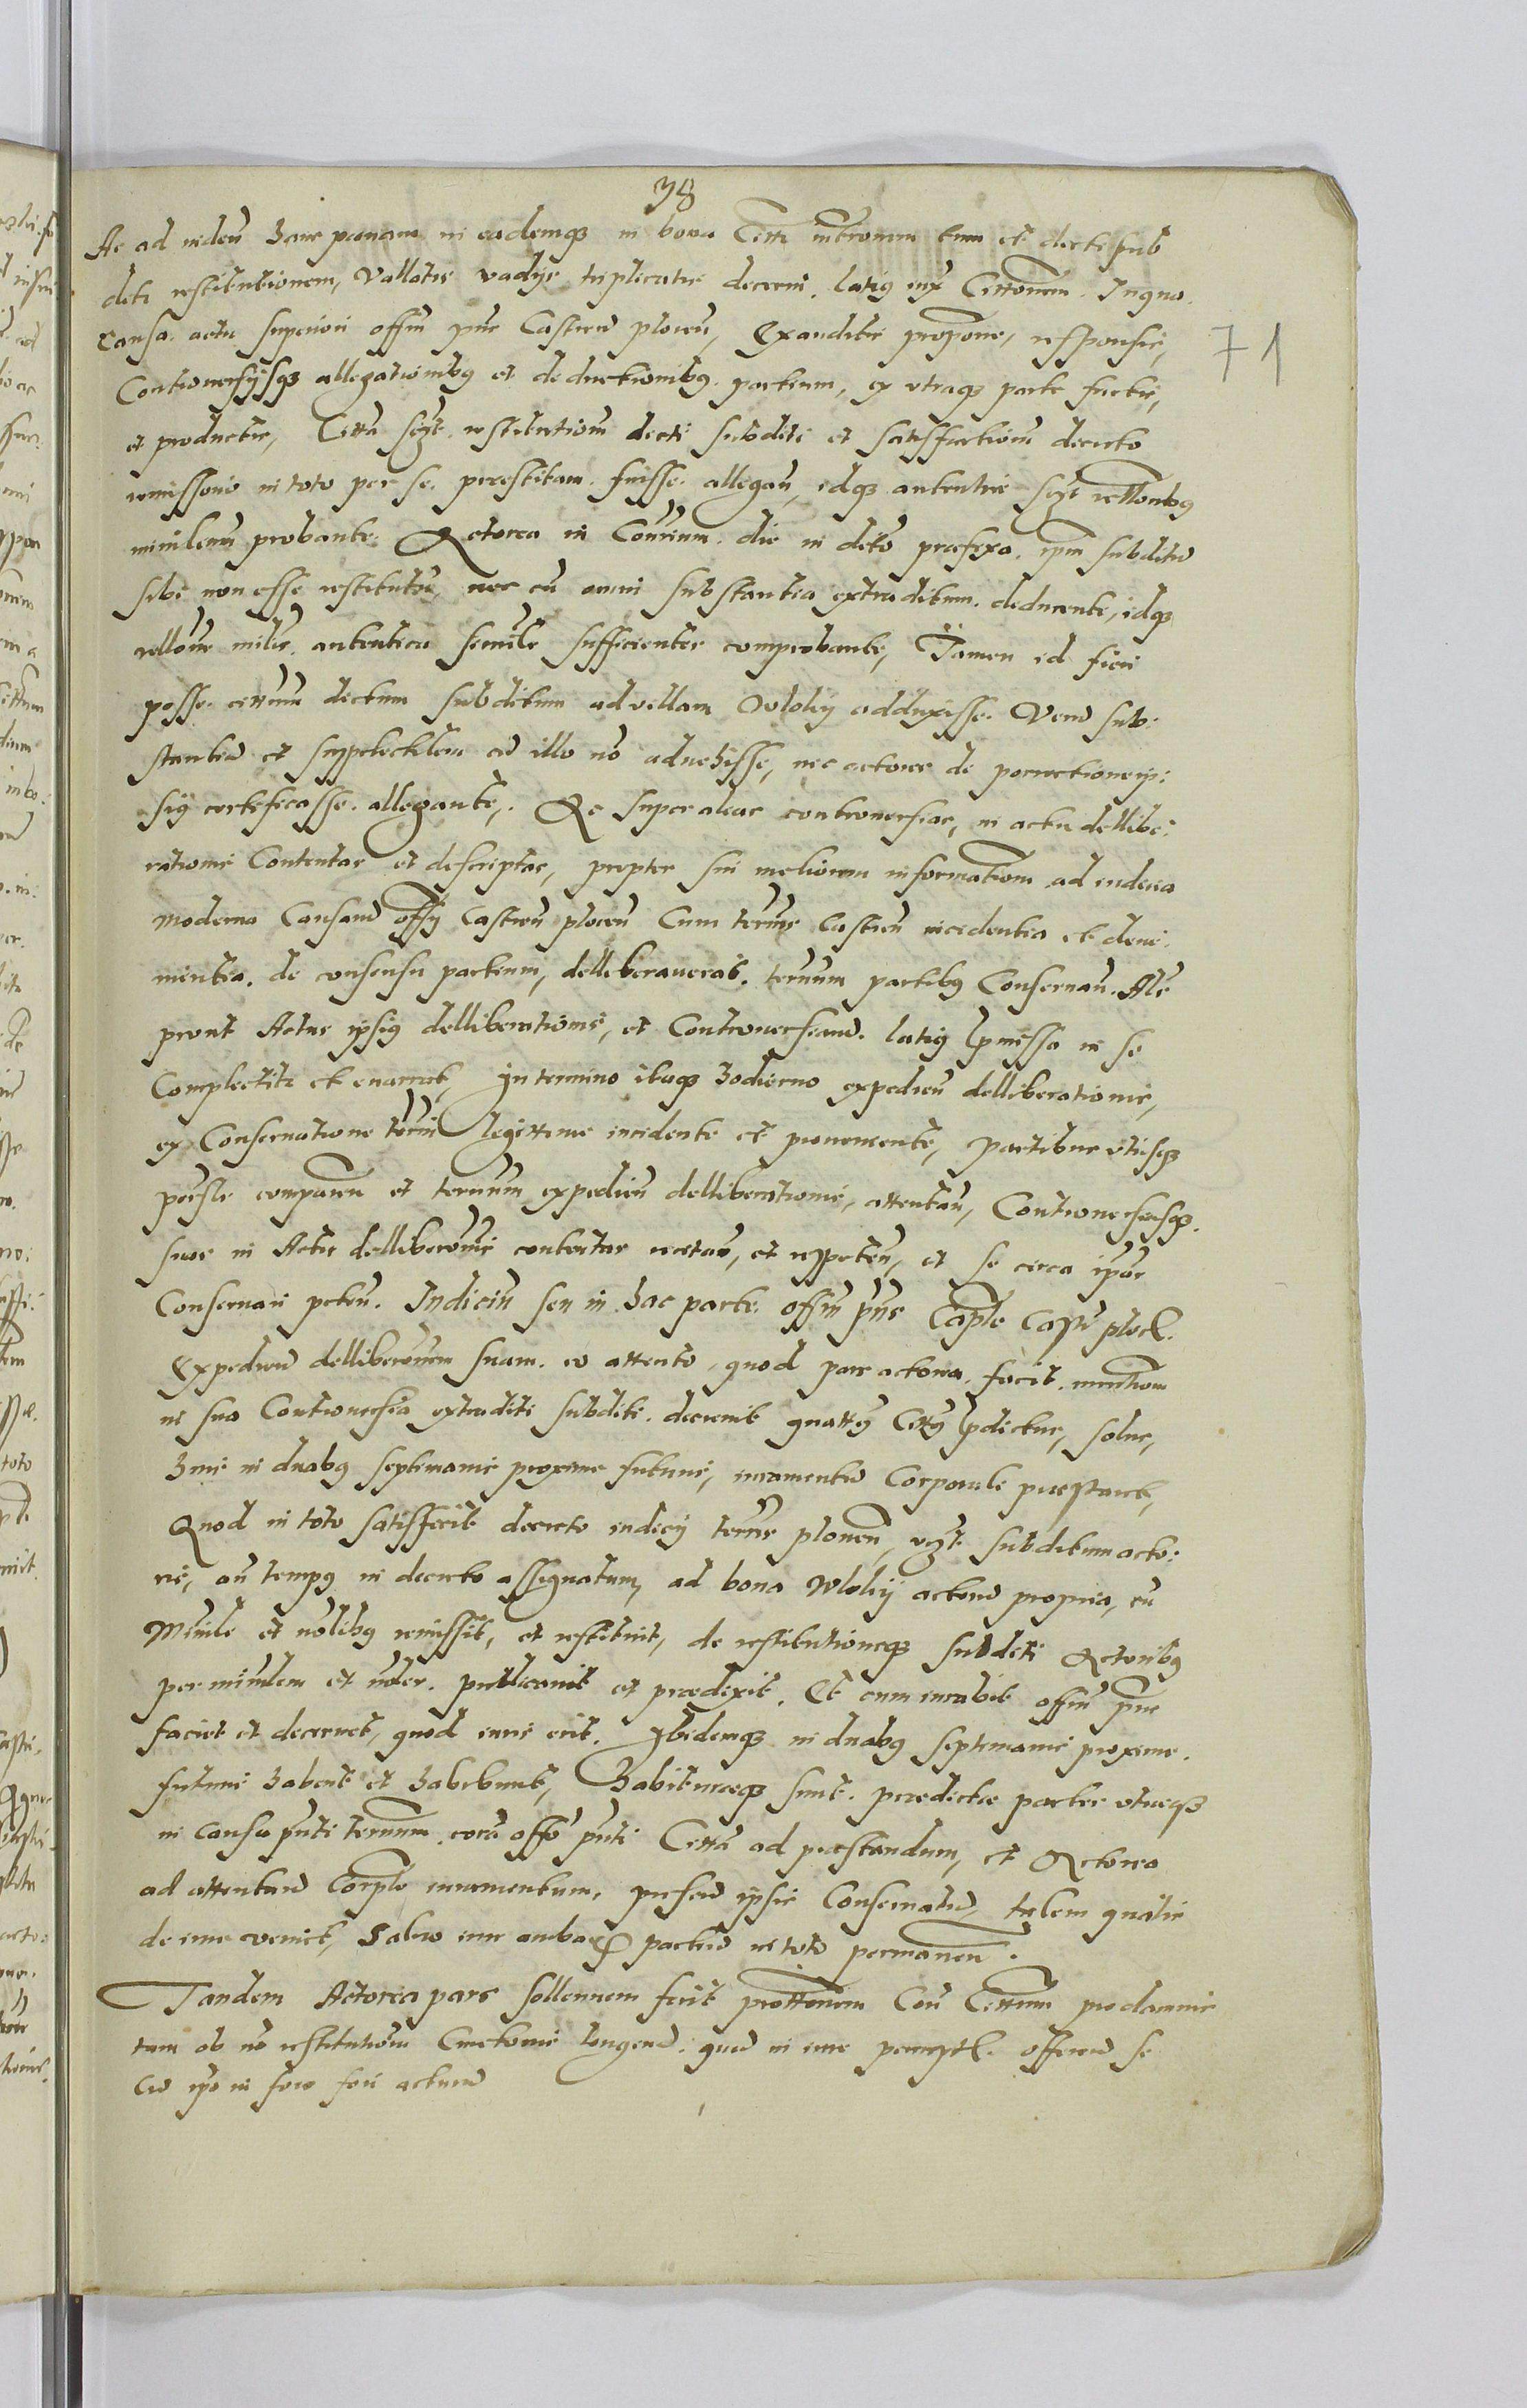 38
71
Ac ad viden hanc poenam in eademq in bona Citti intromm tum et dicti sub
diti restitutionem, Vallatis vadys triplicatis decerni. latig iux Cittonem. In qua
Causa. actu superiori offin pns Castren plocen, Exauditis propone, responsis,
Controversysq allegationibg et deductionibg. partium, ex utraq parte factis,
et productis, Citta sgt. restitutiom dicti subditi et satisfactiom decreto
remissorio in toto per se. praestitam. fuisse. allegan, idq autentic sgt rettonibg
minlenm probante. Actorea in Contrium. die in deto praefixo. ipm subditu
sibi non esse restitutu, nec cu omni substantia extraditum. deducente, idq
rellone milis. autentica simile sufficienter comprobante, Tamen id fieri
posse. cittum dictum subditum ad villam Wloky adduxisse. Veru sub:
stantia et supelectilem cu illo no advexisse, nec actores de porrectione ip:
sig certificasse. allegante,. Ac super aleas controversias, in actu dellibe:
rationis Contentas et descriptas, propter sui meliorem informatiom ad iudicia
moderna Causaru offy Castren plocen Cum termis Castren incidentia et deve:
nientia. de consensu partium, delliberaverat. termum partibg Conservan. Als
prout Actus ipsig delliberationis, et Controversiaru. latig pmissa in se
Complectitr et enarrat, In termino itaq hodierno expedien delliberationis,
ex Conservatione termi legittime incidente et provenente, partibus utrisq
psonlr comparen et termum expedien delliberationis, attentan, Controversiasq.
suas in Actis delliberonis contentas recitan, et reppeten, et se circa ipas
Conservari peten. Iudiciu seu in hac parte. offin pns Caple Castr plocz.
Expedien delliberonem suam. eo attento, quod pars actorea. facit. mentiom
in sua Controversia extraditi subditi. decrevit quattg Cittg pdictus, solus,
hinc in duabg septimanis proxime futuris, iuramentu Corporale praestaret,
Quod in toto satisfecit decreto iudicy termis plonen, vgt. subditum acto:
ris, an tempg in decreto assignatum, ad bona Wloky actoru propria, cu
Minile et nolibg remissit, et restituit, de restitutioneq subditi Actoribg
per minilem et nober. publicavit et praedixit. Et cum iurabit offin pns
faciet et decernet, quod iuris erit. Ibidemq in duabg septimanis proxime.
futuris habent et habebunt, Habituraeq sunt. praedictae partes utraeq
in causa pnti termum. cora offo pnti Citta ad praestandum, et Actorea
ad attentand Corple iuramentum, praesens ipsis Conservatu, talem qualis
de iure venit, Salvo iure ambar partiu in toto permanen.
Tandem Actorea pars sollennem fecit prottonem Con Cittum pro damnis
tam ob no restitutiom Cmetonis longeru. quae in iure pempt. offeren se
cu ipo in foro fori acturu